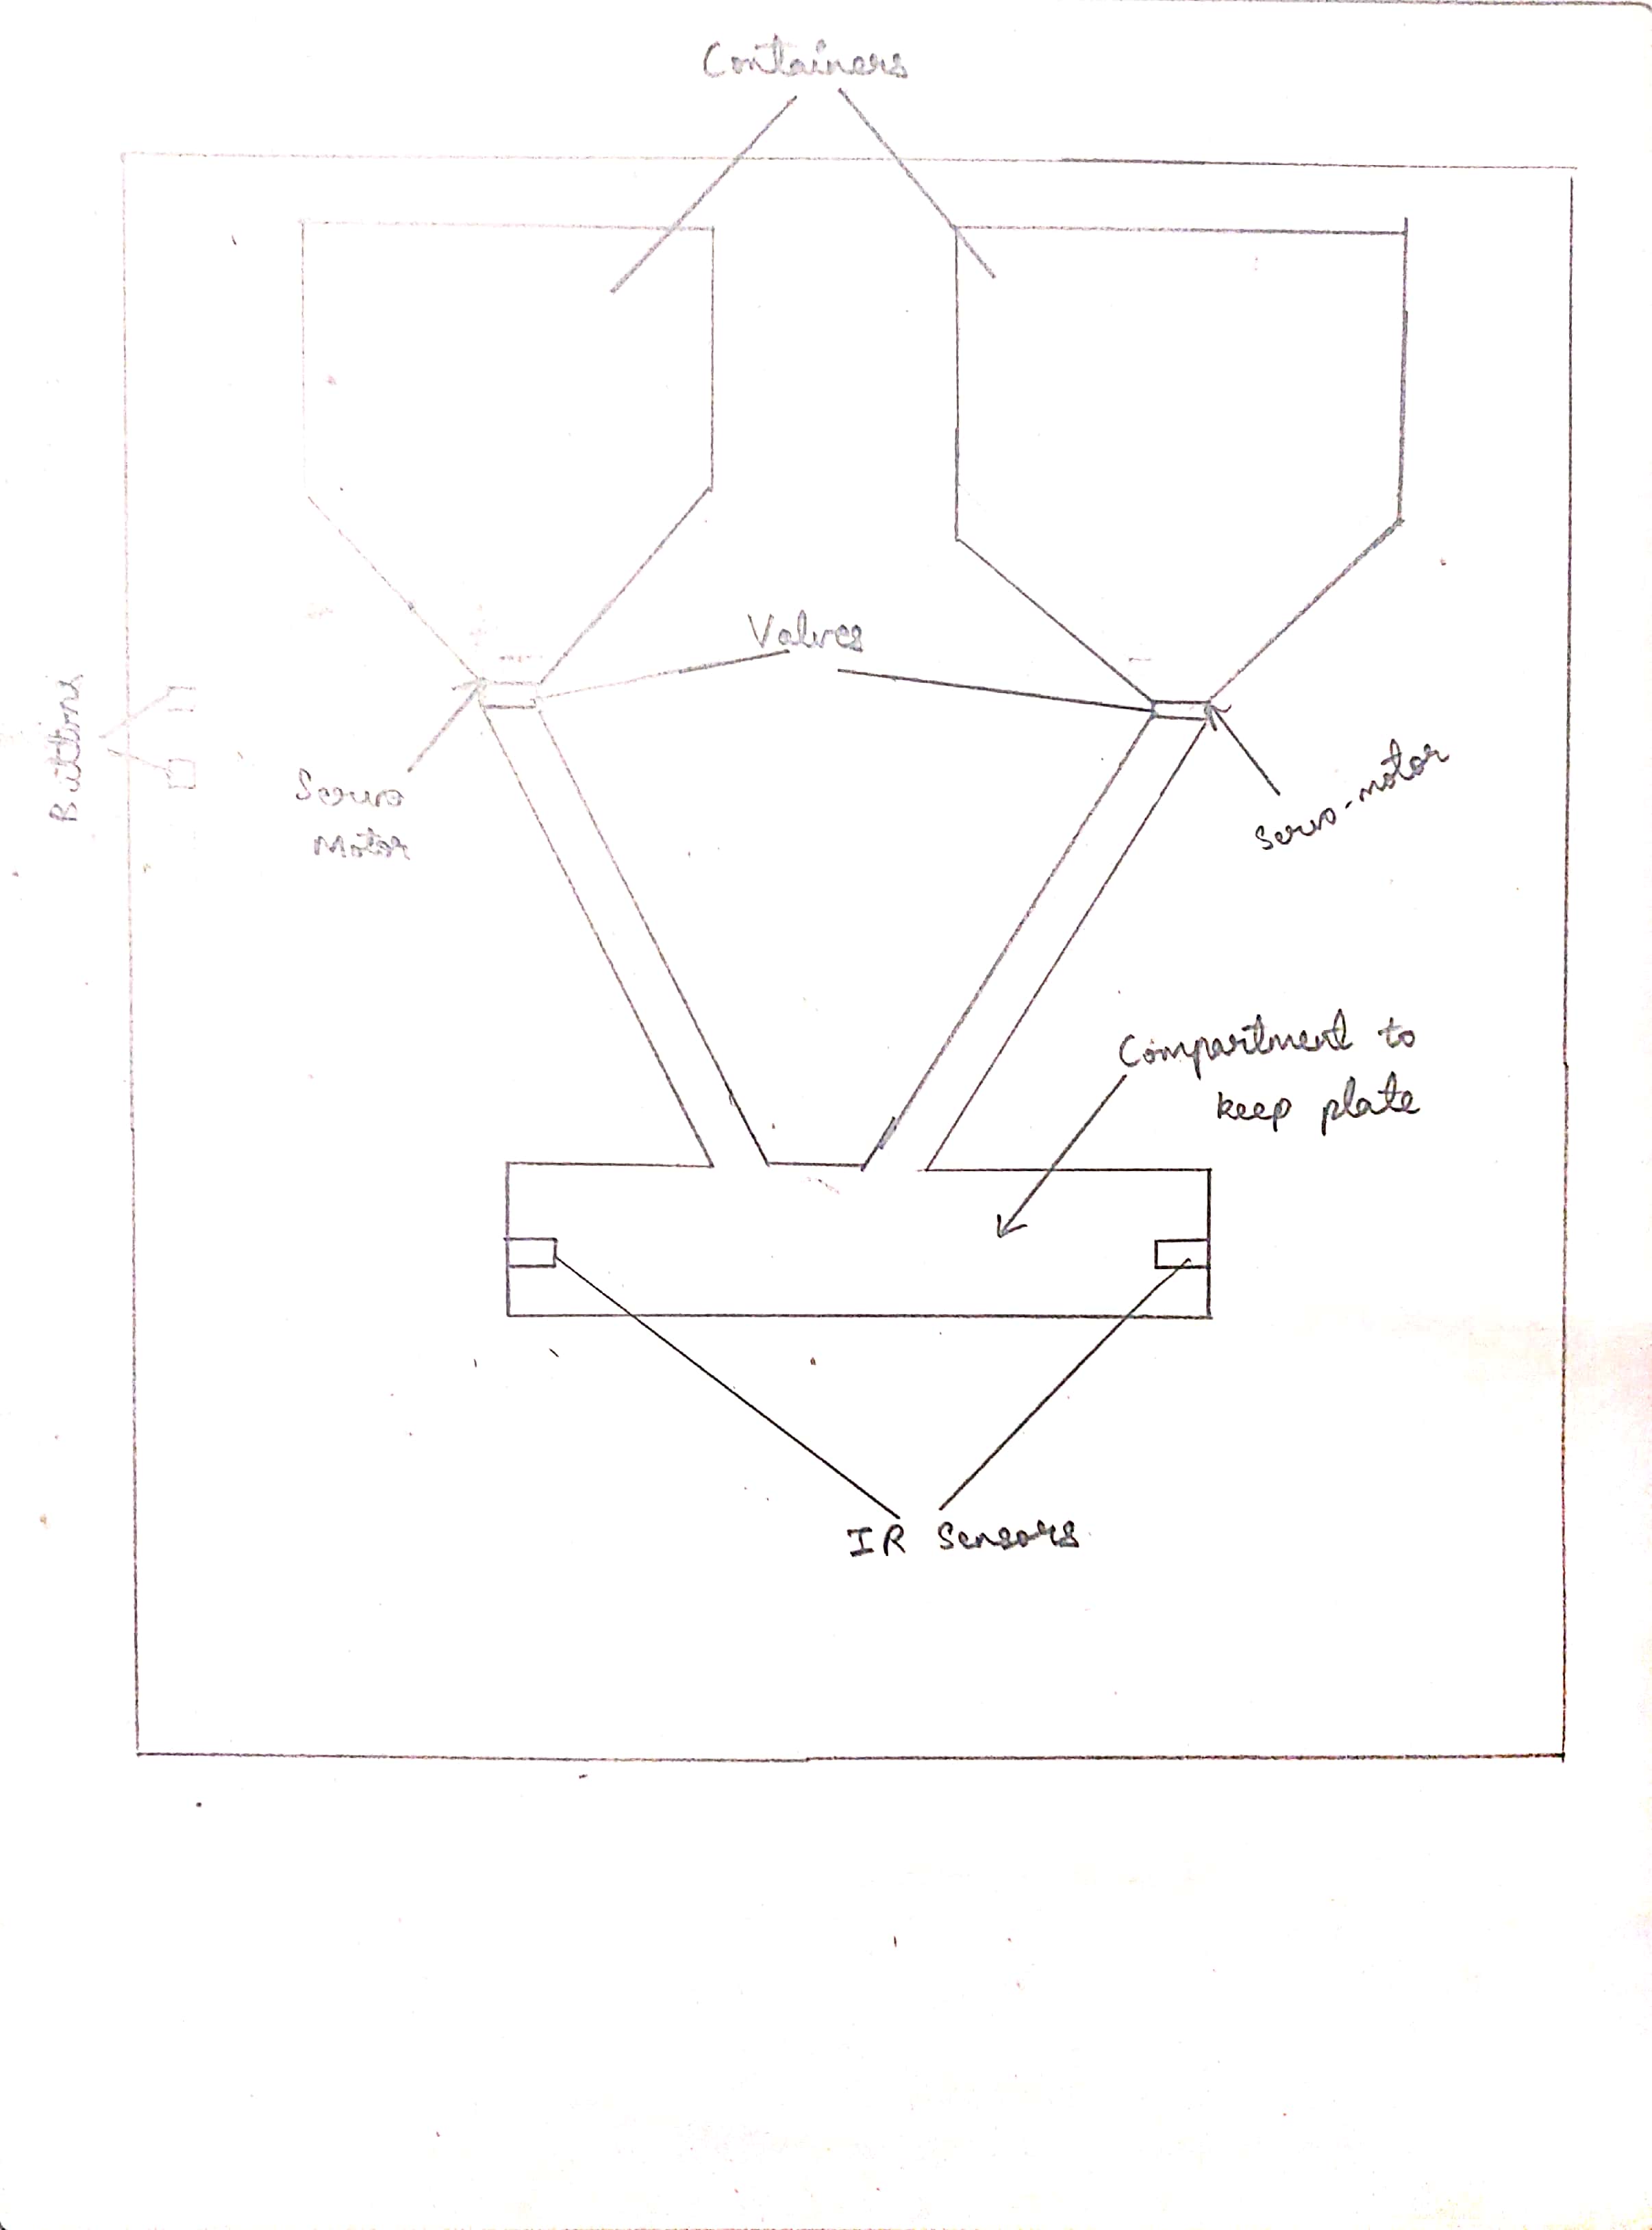 Containers
Valves
Buttons
Servo
Motor
Servo-motor
Compartment to
keep plate
IR Sensors